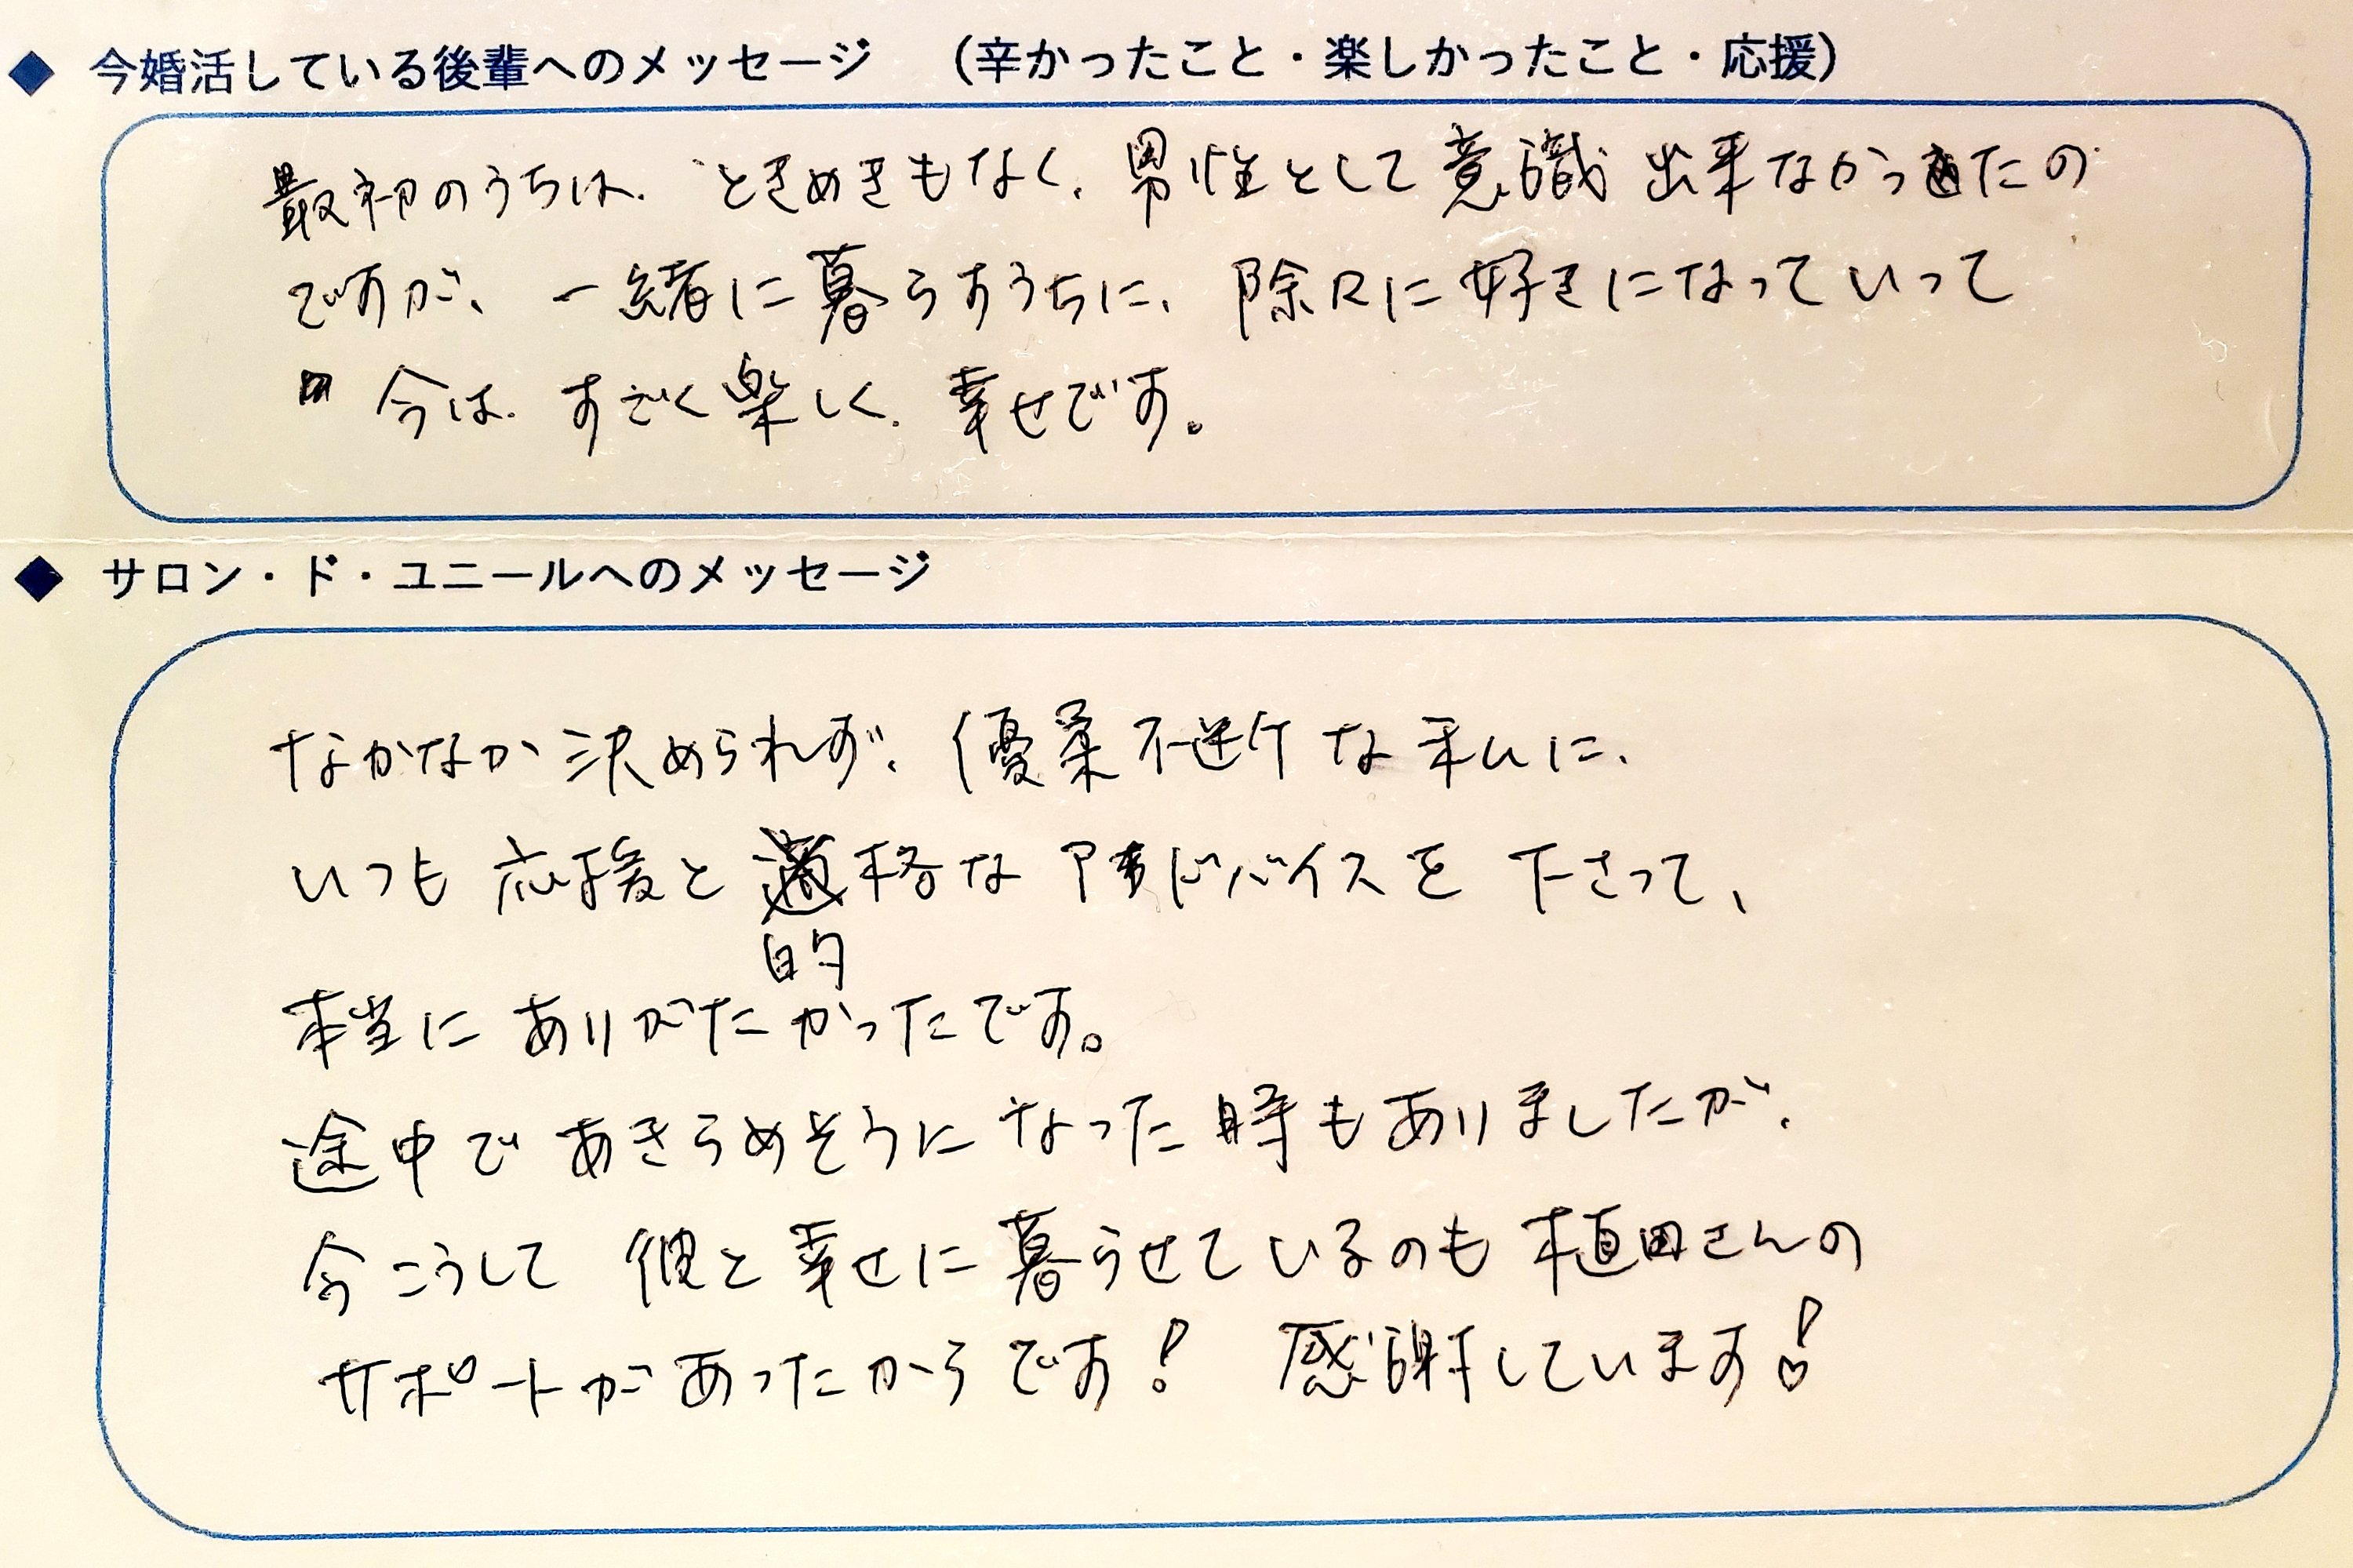 ◆ 今婚活している後輩へのメッセージ （辛かったこと・楽しかったこと・応援）
最初のうちは、ときめきもなく、男性として意識出来なかったの
ですが、一緒に暮らすうちに、除々に好きになっていって
今は、すごく楽しく、幸せです。
◆ サロン・ド・ユニールへのメッセージ
なかなか決められず、優柔不断な私に、
いつも応援と的格なアドバイスを下さって、
本当にありがたかったです。
途中であきらめそうになった時もありましたが、
今こうして彼と幸せに暮らせているのも植田さんの
サポートがあったからです！ 感謝しています！